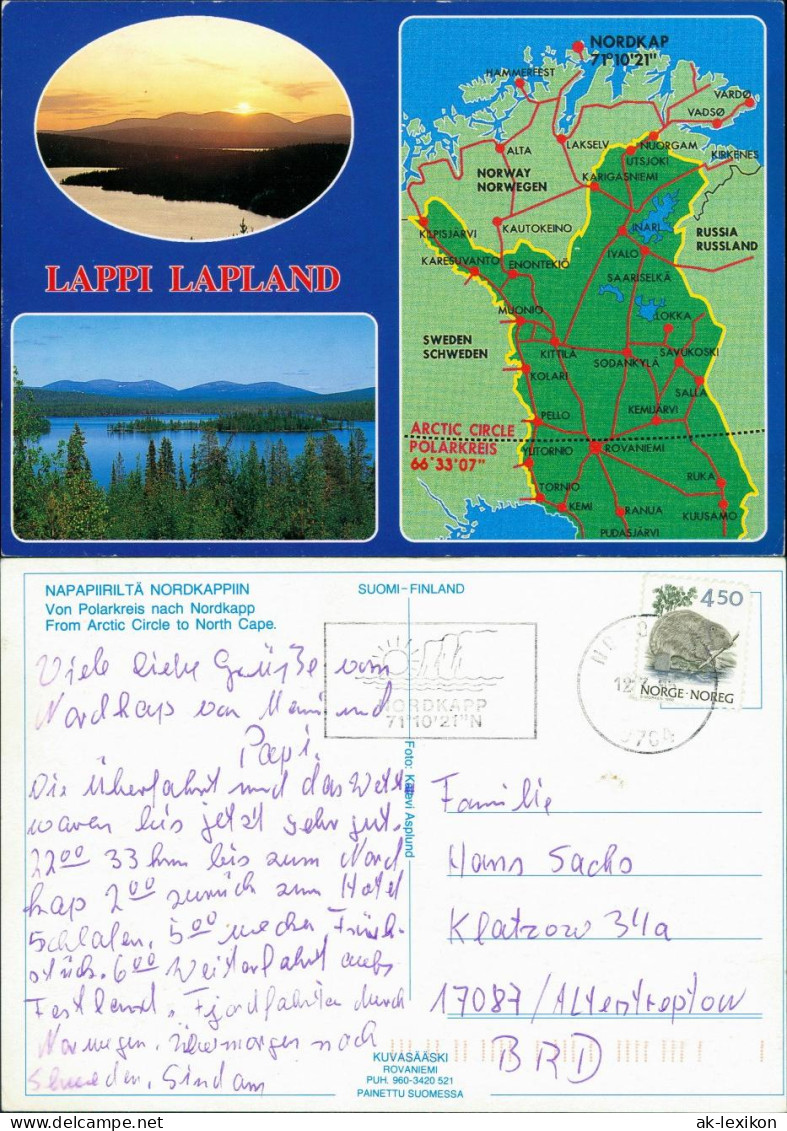 LAPPI LAPLAND
NORDKAP
71°10'21"
HAMMERFEST
VARDØ
VADSØ
ALTA
LAKSELV
NUORGAM
UTSJOKI
KIRKENES
NORWAY
NORWEGEN
KARIGASNIEMI
KILPISJÄRVI
KAUTOKEINO
INARI
RUSSIA
RUSSLAND
IVALO
KARESUVANTO
ENONTEKIÖ
SAARISELKÄ
MUONIO
LOKKA
SWEDEN
SCHWEDEN
KITTILÄ
SODANKYLÄ
SAVUKOSKI
KOLARI
SALLA
PELLO
KEMIJÄRVI
ARCTIC CIRCLE
POLARKREIS
66°33'07"
YLITORNIO
ROVANIEMI
RUKA
TORNIO
KEMI
RANUA
KUUSAMO
PUDASJÄRVI
NAPAPIIRILTÄ NORDKAPPIIN
Von Polarkreis nach Nordkapp
From Arctic Circle to North Cape.
SUOMI-FINLAND
450
NORGE·NOREG
NORDKAPP
71°10'21"N
12.7.
9764
Viele liebe Grüße vom
Nordkap von Mami und
Papi.
Die Überfahrt und das Wett
waren bis jetzt sehr gut.
22⁰⁰ 33 km bis zum Nord
kap 2⁰⁰ zurück zum Hotel
Schlafen. 5⁰⁰ wecken Früh-
stück. 6⁰⁰ Weiterfahrt aufs
Festland. Fjordfahrten durch
Norwegen. Übermorgen nach
Schweden. Sind am
Foto: Kalevi Asplund
Familie
Hans Sachs
Klatzow 34a
17087/Altentreptow
BRD
KUVASÄÄSKI
ROVANIEMI
PUH. 960-3420 521
PAINETTU SUOMESSA
ak-lexikon